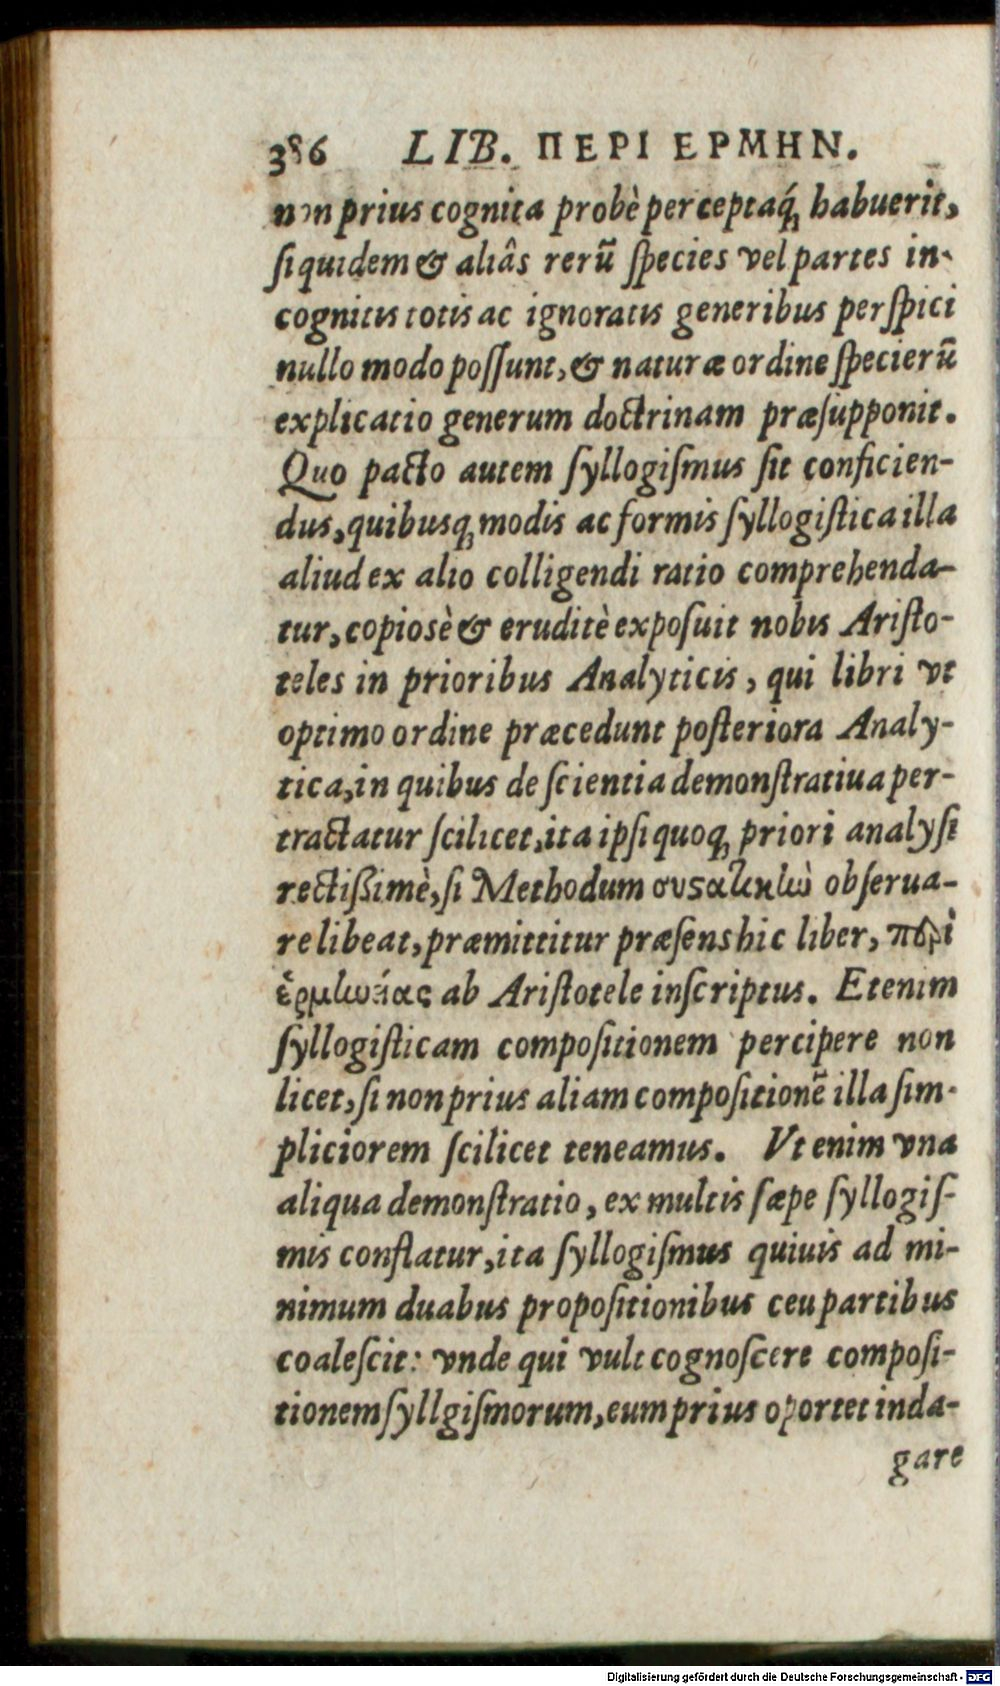 386 LIB. ΠΕΡΙ ΕΡΜΗΝ.
non prius cognita probè perceptaq́; habuerit,
ſiquidem & aliâs rerũ ſpecies vel partes in-
cognitis totis ac ignoratis generibus perſpici
nullo modo poſſunt, & naturæ ordine ſpecierũ
explicatio generum doctrinam præſupponit.
Quo pacto autem ſyllogiſmus ſit conficien-
dus, quibusq; modis ac formis ſyllogiſtica illa
aliud ex alio colligendi ratio comprehenda-
tur, copiosè & eruditè expoſuit nobis Ariſto-
teles in prioribus Analyticis, qui libri vt
optimo ordine præcedunt poſteriora Analy-
tica, in quibus de ſcientia demonſtratiua per-
tractatur ſcilicet, ita ipſi quoq; priori analyſi
rectißimè, ſi Methodum συστατικὼ obſerua-
re libeat, præmittitur præſens hic liber, περὶ
ἑρμωείας ab Ariſtotele inſcriptus. Etenim
ſyllogiſticam compoſitionem percipere non
licet, ſi non prius aliam compoſitionẽ illa ſim-
pliciorem ſcilicet teneamus. Vt enim vna
aliqua demonſtratio, ex multis ſæpe ſyllogiſ-
mis conflatur, ita ſyllogiſmus quiuis ad mi-
nimum duabus propoſitionibus ceu partibus
coaleſcit: vnde qui vult cognoſcere compoſi-
tionem ſyllgiſmorum, eum prius oportet inda-
gare
Digitalisierung gefördert durch die Deutsche Forschungsgemeinschaft - DFG